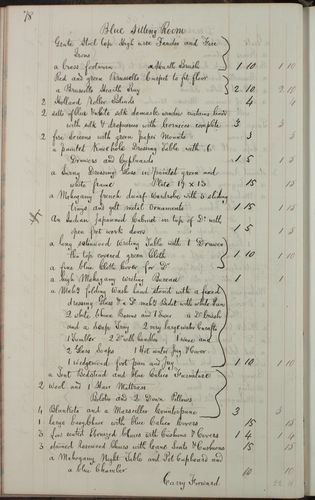 78
Blue Sitting Room
Gents Steel Cap High wire Fender and Fire
Irons
a Brass footman a Hearth Brush 1 10 1 10
Red and green Brussells Carpet to fit floor
a Brussells Hearth Rug 2 10 2 10
2 Holland Roller Blinds 4 4
2 sets of Blue & white silk damask window curtains lined
with silk & draperies with Cornices complete 3 3
2 fire screens with green paper Mounts 3 3
a painted Knee hole Dressing Table with 6
Drawers and Cupboards 1 5 1 5
a Swing Dressing Glass in painted green and
white frame Plate 19 x 13 15 15
a Mahogany french dwarf Wardrobe with 5 sliding
trays and gilt metal Ornaments 1 15 1 15
An Indian Japanned Cabinet in top of Do with
open fret work doors 1 5 1 5
a long satinwood Writing Table with 1 Drawer
the top covered green Cloth 1 10 1 10
a fine blue Cloth Cover for Do
a high Mahogany Writing Bureau 1 1
a Mahy folding Wash hand Stand with a fixed
dressing Glass & a Do mahy Bidet with white
2 white blue Basins and 1 Ewer a Do brush
and a Soap Tray 2 very large water Carafts
1 Tumbler 2 Do with handles 1 and
2 Glass Soaps 1 Hot water Jug & Cover
1 wedgewood foot pan and Jug 1 10 1 10
a Tent Bedstead and Blue Calico Furniture
2 Wool and 1 Hair Mattress
Bolster and 2 Down Pillows
4 Blankets and a Marseilles Counterpane 3 3
1 large easy chair with blue Calico Covers 15 15
3 Low seated Ebonized Chairs with Cushions & Covers 1 4 1 4
3 stained Rosewood Chairs with Cane Seats & Cushions 15 15
a Mahogany Night Table and Pot Cupboard and
a blue Chamber 10 10
Carry Forward